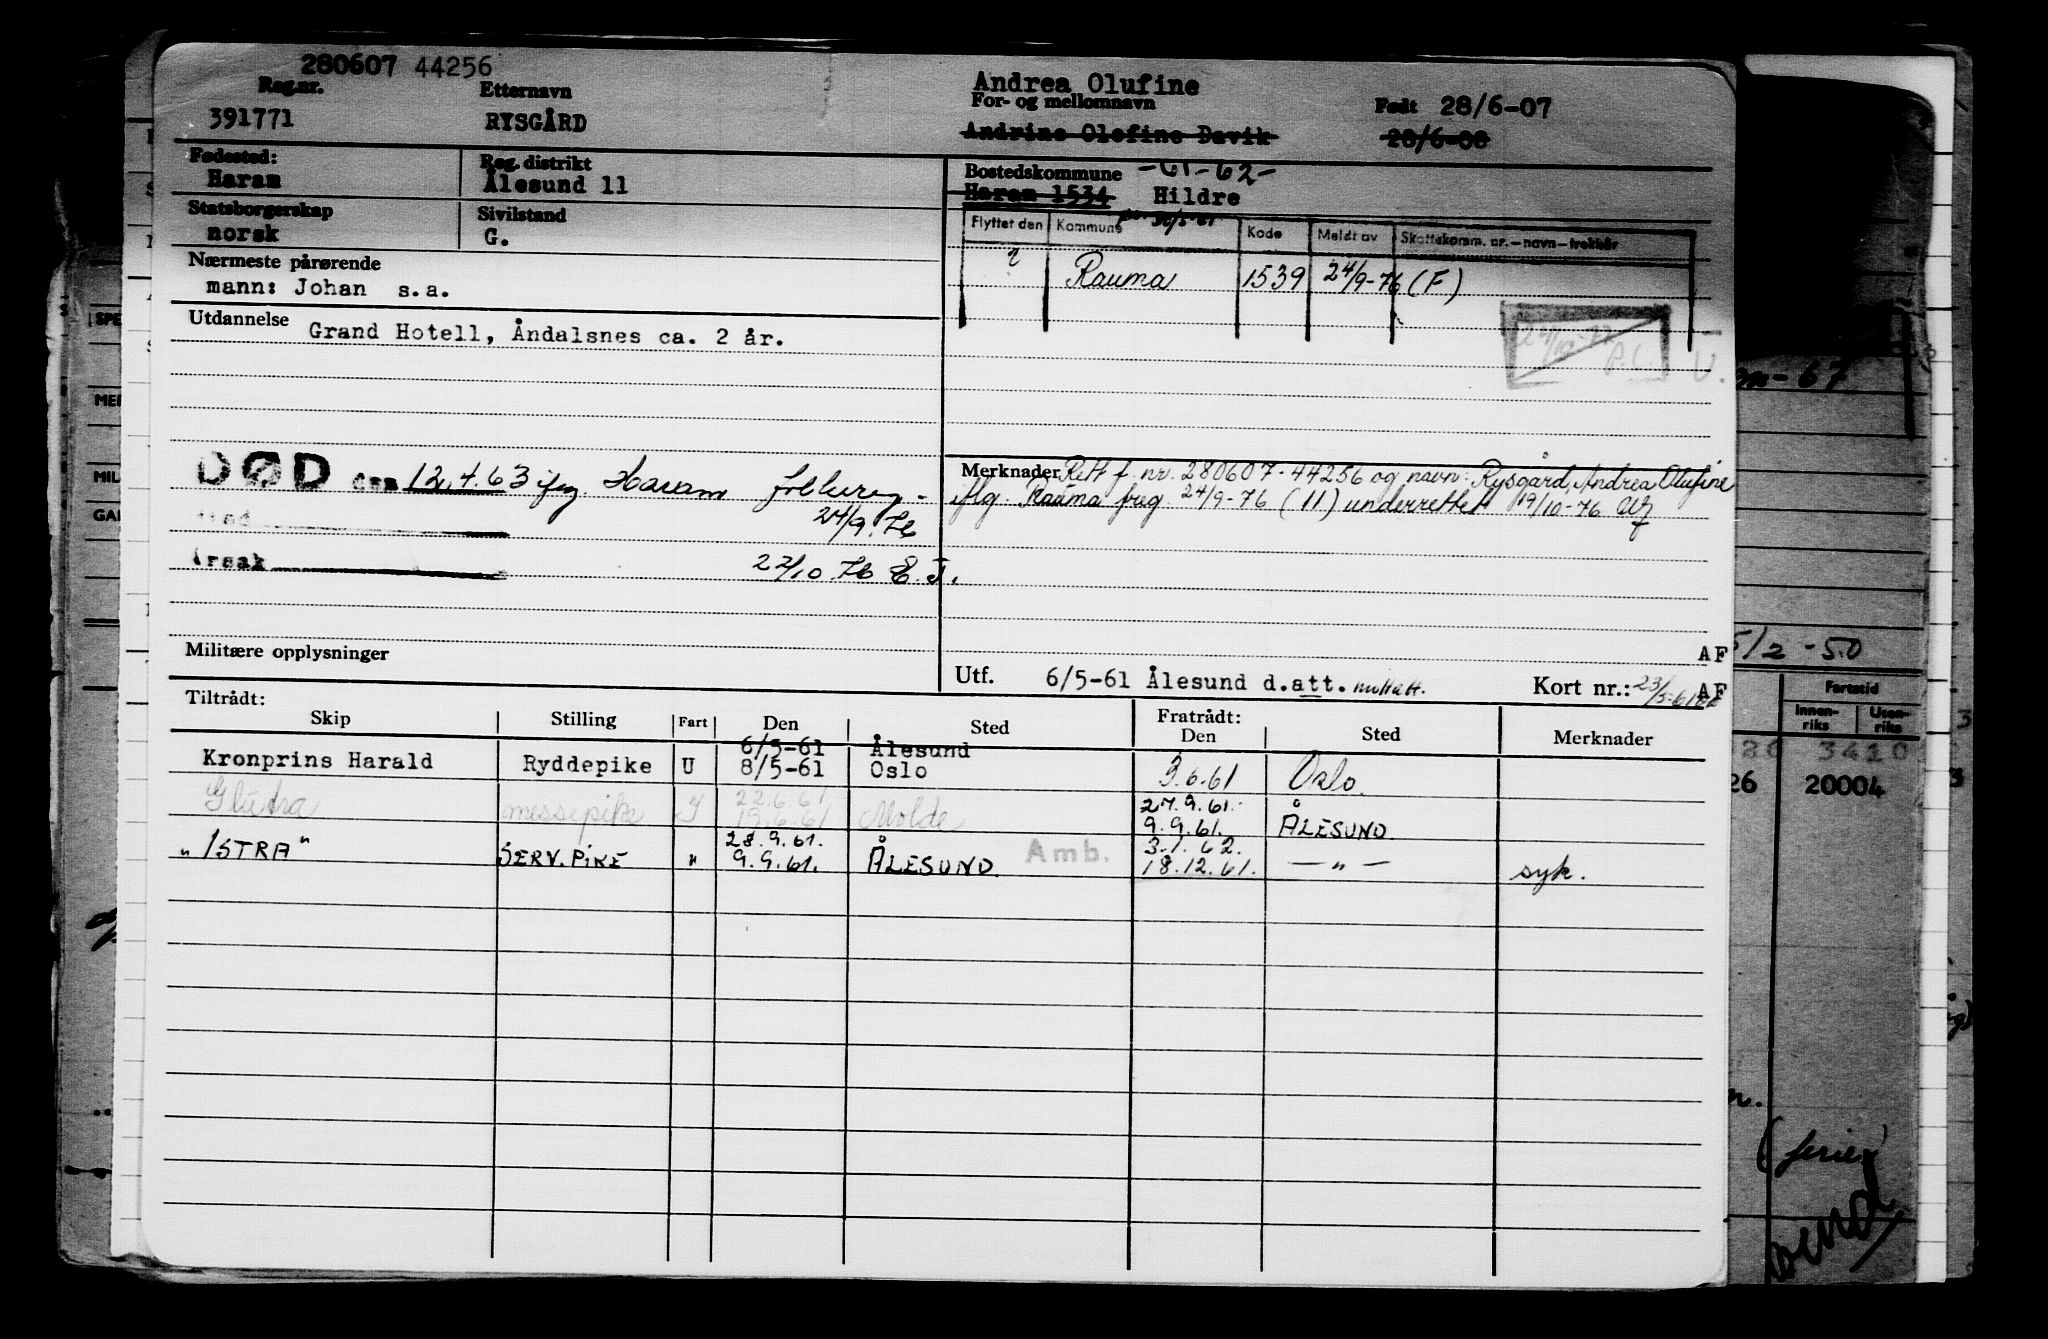 280607 44256
Reg.nr. Etternavn
391771 RYSGÅRD
Andrea Olufine
For- og mellomnavn
Andrine Olefine Davik
Født 28/6-07
28/6-08
Fødested:
Haram
Reg. distrikt
Ålesund 11
Statsborgerskap
norsk
Sivilstand
G.
Nærmeste pårørende
mann: Johan s.a.
Utdannelse
Grand Hotell, Åndalsnes ca. 2 år.
Bostedskommune -61-62-
Haram 1534 Hildre
Flyttet den Kommune Kode Meldt av Skattekomm. nr.-navn-trekkår
Rauma 1539 24/9-76 (F)
DØD den 12.4.63 ifg Haram folkereg.
24/9.76
Årsak
22/10.76 E.J.
Merknader Rett f. nr. 280607-44256 og navn: Rysgård, Andrea Olufine
iflg. Rauma freg. 24/9-76 (11) underrettet 19/10-76
Militære opplysninger
AF
Utf. 6/5-61 Ålesund d.att. Kort nr.: 23/5-61 AF
Tiltrådt: Fratrådt:
Skip Stilling Fart Den Sted Den Sted Merknader
6/5-61 Ålesund
Kronprins Harald Ryddepike U 8/5-61 Oslo 3.6.61 Oslo.
22.6.61 27.9.61.
messepike 19.6.61 Molde 9.9.61. ÅLESUND
28.9.61. 3.1.62.
"ISTRA" SERV.PIKE " 9.9.61. ÅLESUND. Amb. 18.12.61. — " — syk.
5/2 -50
Fartstid
Innen-riks Uten-riks
3410
26 20004